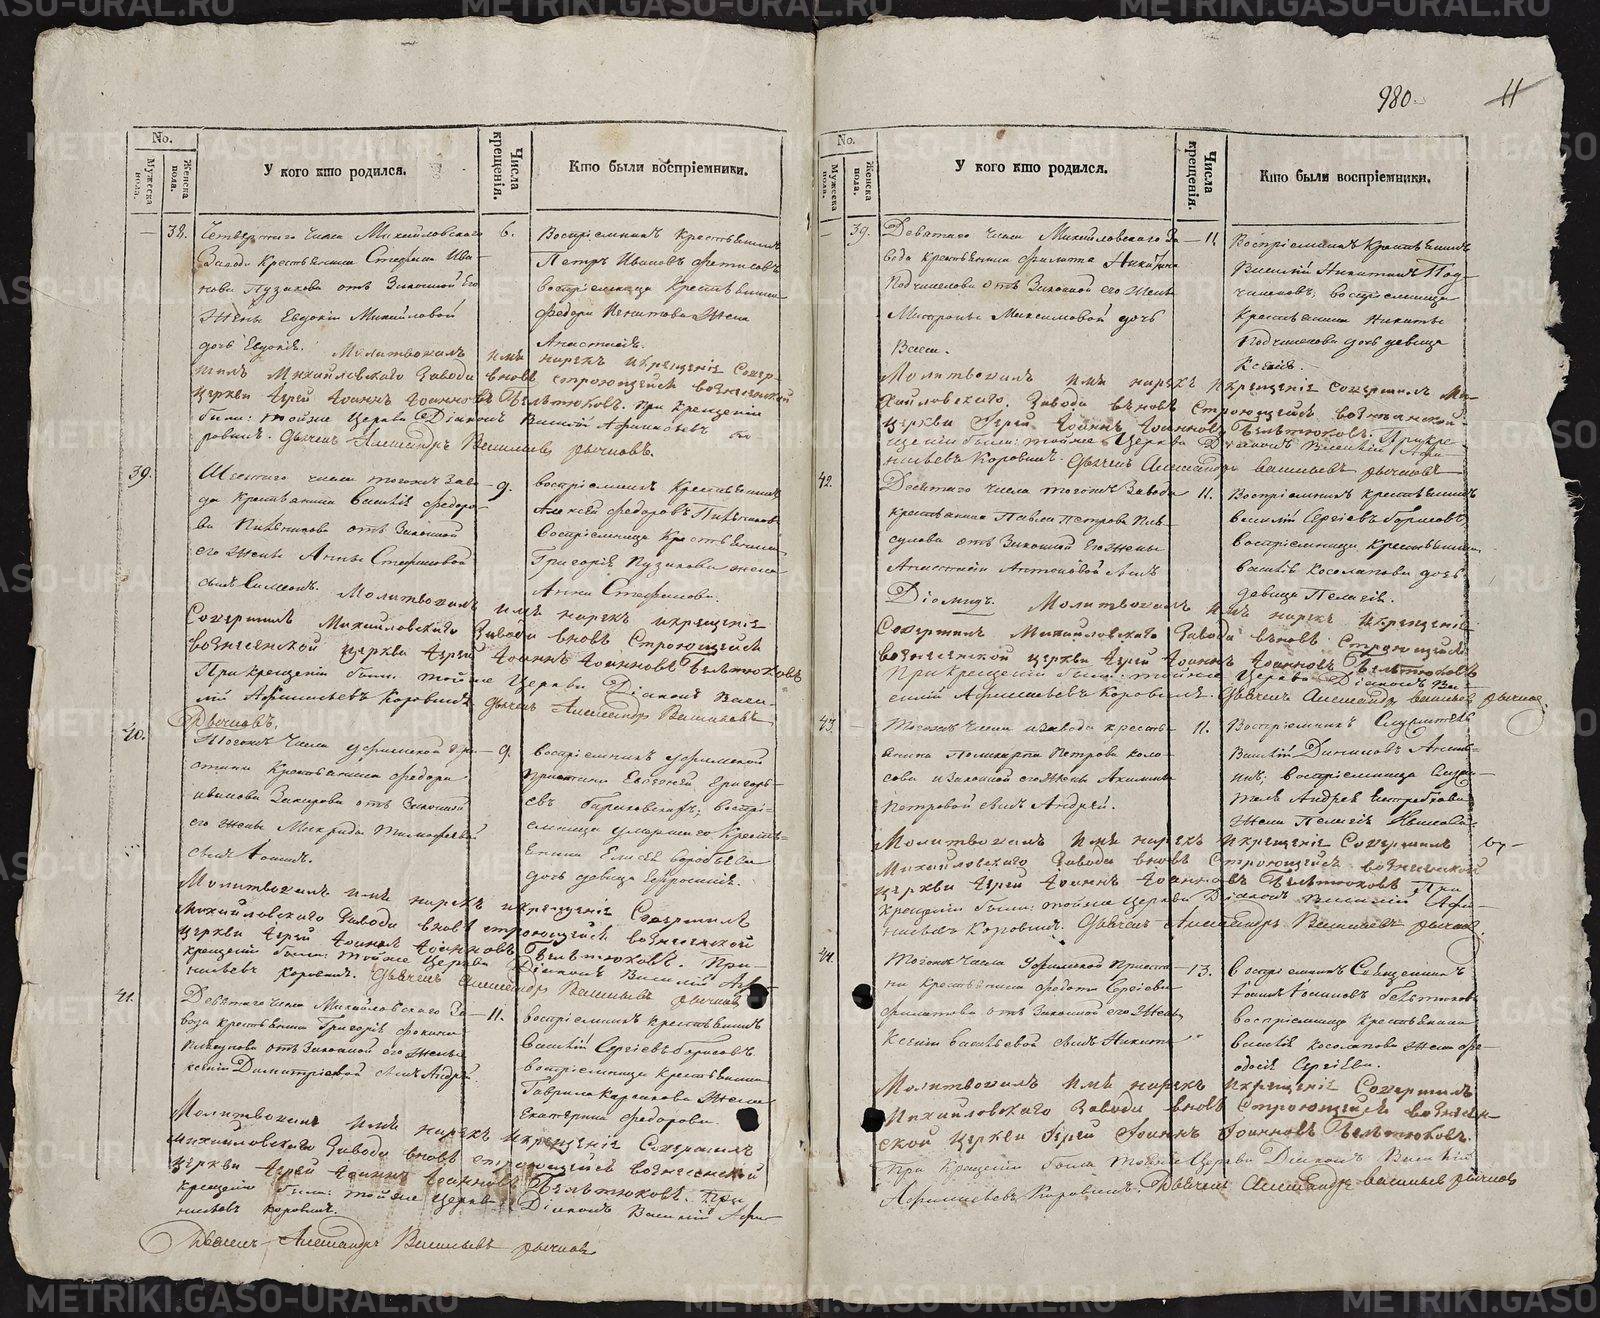 980.
11
No.
Мужеска пола.
Женска пола.
У кого кто родился.
Числа крещенія.
Кто были воспріемники.
38.
Четвертаго числа Михайловскаго
Завода крестьянина Стефана Ива-
нова Пузакова отъ Законной его
Жены Евдокіи Михайловой
дочь Евдокія.
6.
Воспріемникъ крестьянинъ
Петръ Ивановъ
воспріемница крестьянина
Федора Жена
Анастасія.
Молитвовалъ имя нарекъ и крещеніе Совер-
шилъ Михайловскаго Завода вновь строющейся вознесенской
церкви Іерей Іоаннъ Іоанновъ Бѣльтюковъ. При крещеніи
были: тойже Церкви Діаконъ Василій Афанасьевъ Ко
ровинъ. Дьячекъ Александръ Васильевъ Рычковъ.
39.
Шестаго числа тогожъ Заво-
да крестьянина Василія Федоро-
ва отъ Законной
его Жены Анны Стефановой
сынъ Симеонъ.
9.
воспріемникъ крестьянинъ
Алексѣй Федоровъ
Воспріемница крестьянина
Григорія Пузакова жена
Анна Стефанова.
Молитвовалъ имя нарекъ и крещеніе
Совершилъ Михайловскаго Завода вновь Строющейся
вознесенской церкви Іерей Іоаннъ Іоанновъ Бѣльтюковъ
При крещеніи были: тойже Церкви Діаконъ Васи-
лій Афанасьевъ Коровинъ Дьячекъ Александръ Васильевъ
Рычковъ.
40.
Тогожъ числа Уфимской при-
стани Крестьянина Федора
Иванова отъ Законной
его Жены Тимофеевой
сынъ Іоаннъ.
9.
воспріемникъ Уфимской
пристани Евгеній Григорь-
евъ воспрі-
емница умершаго Кресть-
янина Елисея
дочь девица
Молитвовалъ имя нарекъ и крещеніе Совершилъ
Михайловскаго Завода вновь строющейся вознесенской
церкви Іерей Іоаннъ Іоанновъ Бѣльтюковъ. При
крещеніи были: тойже Церкви Діаконъ Василій Афа-
насьевъ Коровинъ. Дьячекъ Александръ Васильевъ Рычковъ
41.
Девятаго числа Михайловскаго За-
вода крестьянина Григорія
отъ Законной его Жены
Ксеніи Димитріевой сынъ Андрей.
11.
воспріемникъ крестьянинъ
Василій Сергіевъ Борисовъ
воспріемница крестьянина
Гаврила Жена
Екатерина Федорова.
Молитвовалъ имя нарекъ и крещеніе Совершилъ
Михайловскаго Завода вновь строющейся вознесенской
церкви Іерей Іоаннъ Іоанновъ Бѣльтюковъ. При
крещеніи были: тойже Церкви Діаконъ Василій Афа-
насьевъ Коровинъ.
Дьячекъ Александръ Васильевъ Рычковъ
No.
Мужеска пола.
Женска пола.
У кого кто родился.
Числа крещенія.
Кто были воспріемники.
39.
Девятаго числа Михайловскаго За-
вода крестьянина Филата Никитина
Подчиненова отъ Законной его Жены
Максимовой дочь
Васса.
11.
Воспріемникъ Крестьянинъ
Василій Никитинъ Под-
чиненовъ, воспріемница
крестьянина Никиты
Подчиненова дочь девица
Ксенія.
Молитвовалъ имя нарекъ и крещеніе совершилъ Ми-
хайловскаго Завода вновь Строющейся вознесенской
церкви Іерей Іоаннъ Іоанновъ Бѣльтюковъ. При кре-
щеніи были: тойже Церкви Діаконъ Василій Афа-
насьевъ Коровинъ. Дьячекъ Александръ Васильевъ Рычковъ
42.
Десятаго числа тогожъ Завода
крестьянина Павла Петрова
отъ Законной его Жены
Анастасіи сынъ
Діомидъ.
11.
Воспріемникъ крестьянинъ
Василій Сергіевъ Борисовъ
воспріемница крестьянина
Василія Косолапова дочь
девица Пелагія.
Молитвовалъ имя нарекъ и крещеніе
Совершилъ Михайловскаго Завода вновь Строющейся
вознесенской церкви Іерей Іоаннъ Іоанновъ Бѣльтюковъ
При крещеніи были: тойже Церкви Діаконъ Ва-
силій Афанасьевъ Коровинъ. Дьячекъ Александръ Васильевъ Рычковъ
43.
Тогожъ числа и завода кресть-
янина Поликарпа Петрова
и Законной его Жены Акилины
Петровой сынъ Андрей.
11.
Воспріемникъ Служитель
Василій Даниловъ
воспріемница Служи-
теля Андрея
Жена Пелагія
Молитвовалъ имя нарекъ и крещеніе Совершилъ
Михайловскаго Завода вновь Строющейся вознесенской
церкви Іерей Іоаннъ Іоанновъ Бѣльтюковъ При
крещеніи были: тойже Церкви Діаконъ Василій Афа-
насьевъ Коровинъ. Дьячекъ Александръ Васильевъ Рычковъ.
44.
Тогожъ числа Уфимской приста-
ни крестьянина Федота Сергіева
Филатова отъ Законной его Жены
Ксеніи Васильевой сынъ Никита
13.
воспріемникъ Священникъ
Іоаннъ Іоанновъ Бѣльтюковъ
воспріемница крестьянина
Василія Косолапова Жена Фе-
одосія Сергіева.
Молитвовалъ имя нарекъ и крещеніе Совершилъ
Михайловскаго Завода вновь Строющейся вознесен-
ской церкви Іерей Іоаннъ Іоанновъ Бѣльтюковъ.
При крещеніи были тойже Церкви Діаконъ Василій
Афанасьевъ Коровинъ. Дьячекъ Александръ Васильевъ Рычковъ
METRIKI.GASO-URAL.RU